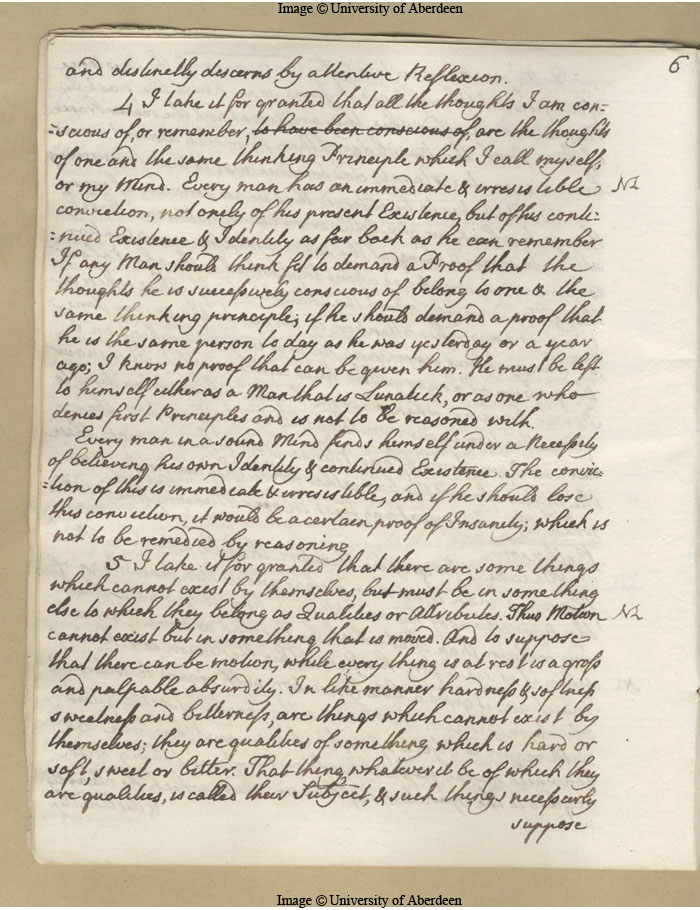 Image © University of Aberdeen
6
and distinctly discerns by attentive Reflexion.
4 I take it for granted that all the thoughts I am con=
=scious of, or remember, to have been conscious of, are the thoughts
of one and the same thinking Principle which I call myself,
or my Mind. Every man has an immediate & irresistible
conviction, not onely of his present Existence, but of his conti=
=nued Existence & Identity as far back as he can remember
If any Man should think fit to demand a Proof that the
thoughts he is successively conscious of belong to one & the
same thinking principle; if he should demand a proof that
he is the same person to day as he was yesterday or a year
ago; I know no proof that can be given him. He must be left
to himself either as a Man that is Lunatick, or as one who
denies first Principles and is not to be reasoned with.
Every man in a sound Mind finds himself under a Necessity
of believing his own Identity & continued Existence. The convic=
=tion of this is immediate & irresistible, and if he should lose
this conviction, it would be a certain proof of Insanity; which is
not to be remedied by reasoning
5 I take it for granted that there are some things
which cannot exist by themselves, but must be in something
else to which they belong as Qualities or Attributes. Thus Motion
cannot exist but in something that is moved. And to suppose
that there can be motion, while every thing is at rest is a gross
and palpable absurdity. In like manner hardness & softness
sweetness and bitterness, are things which cannot exist by
themselves; they are qualities of something which is hard or
soft, sweet or bitter. That thing, whatever it be of which they
are qualities, is called their Subject, & such things necessarly
suppose
Image © University of Aberdeen